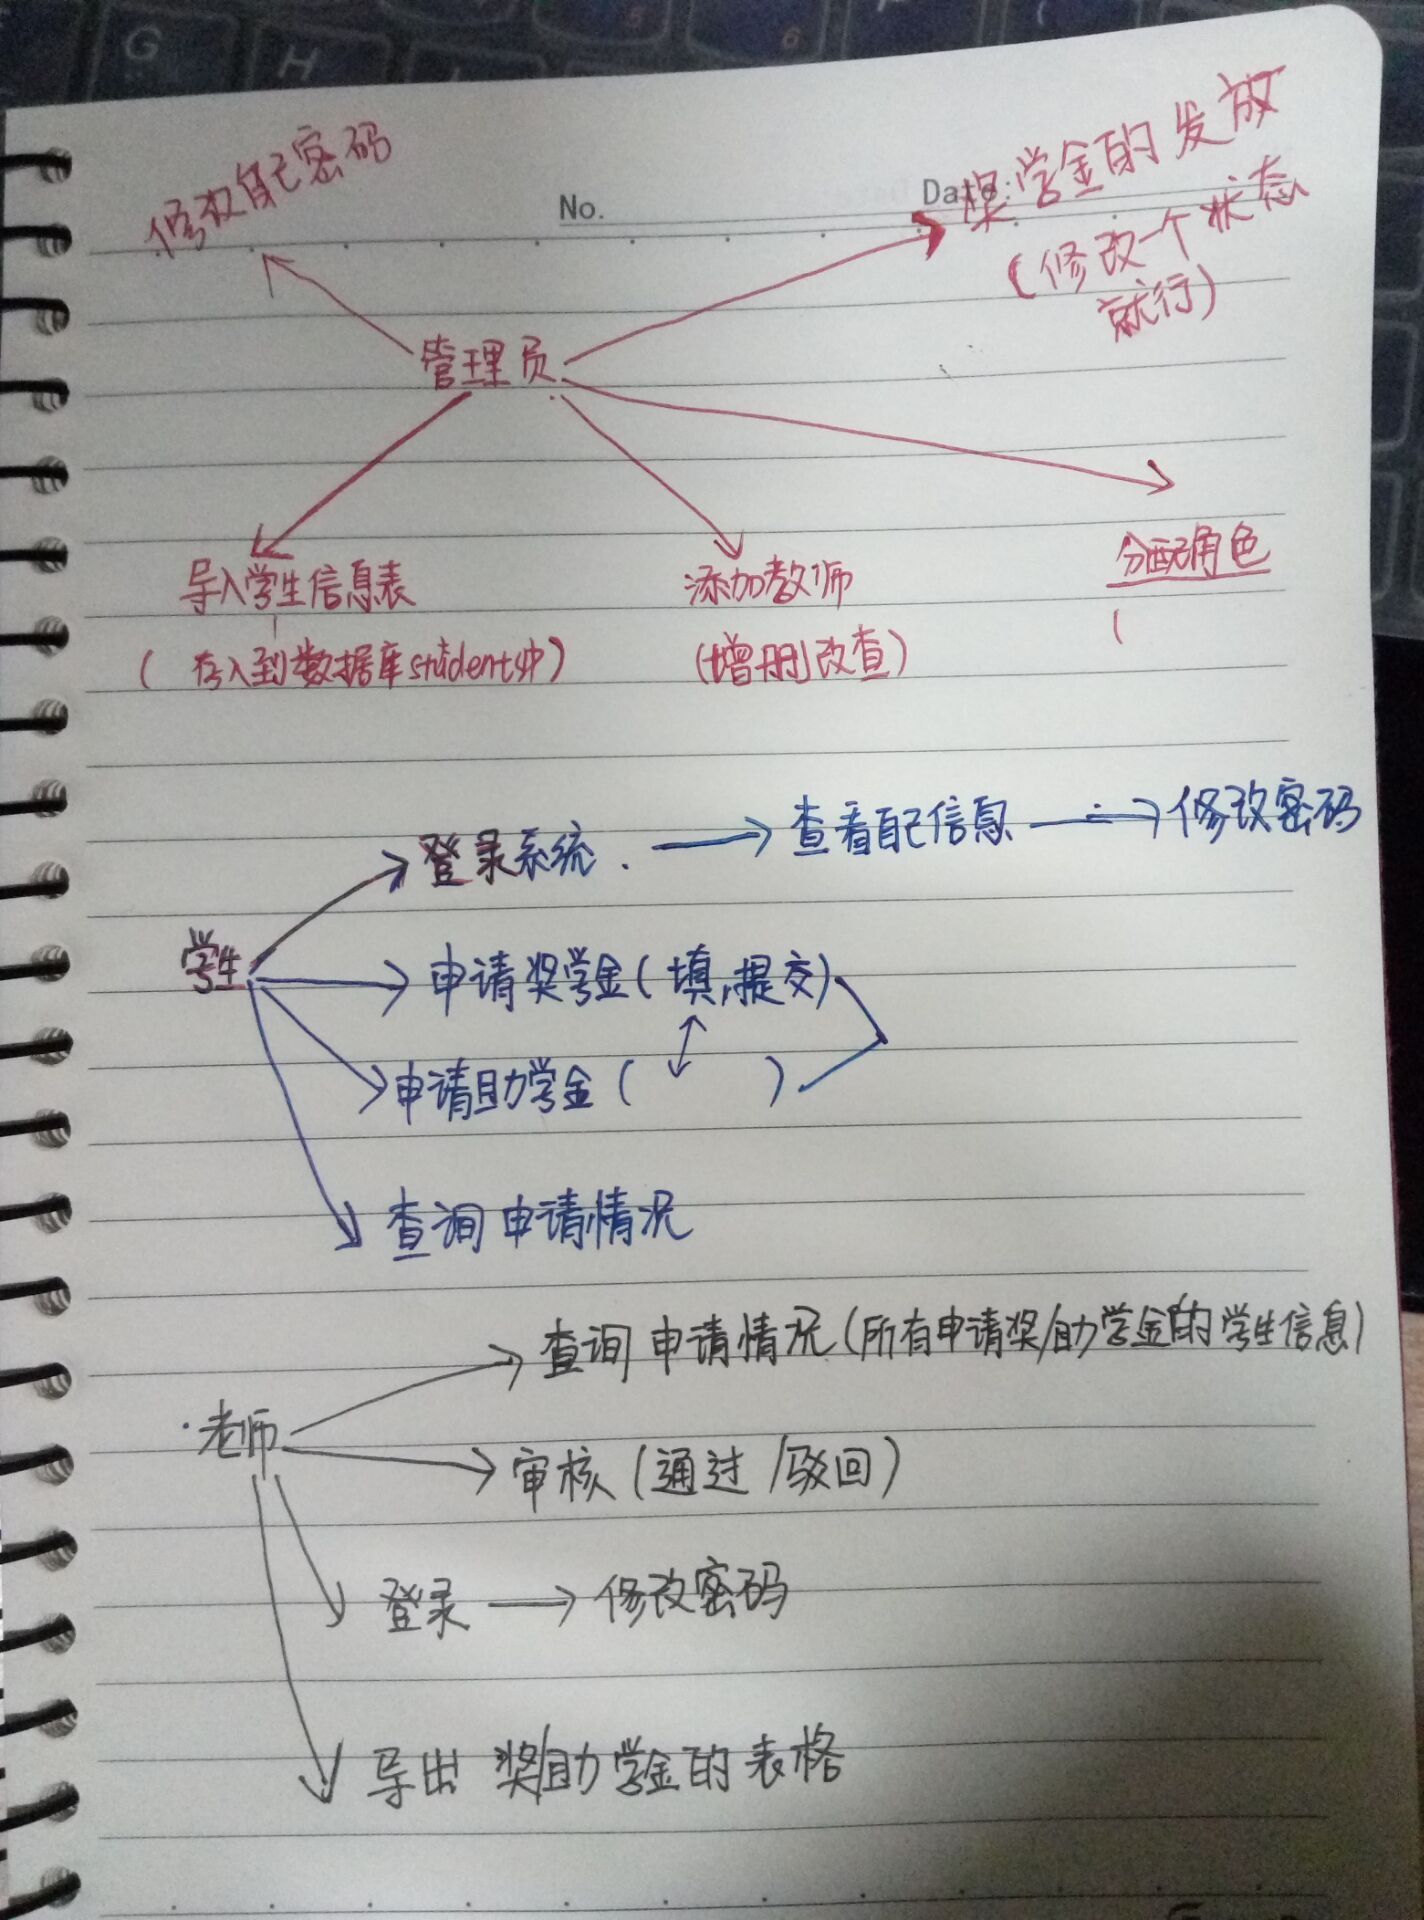 G
H
5
6
修改自己密码
No.
Date:
奖学金的发放
(修改一个状态
就行)
管理员
导入学生信息表
(存入到数据库student中)
添加教师
(增册改查)
分配角色
(
登录系统. → 查看自己信息 → 修改密码
学生
申请奖学金(填,提交)
申请助学金( )
查询申请情况
查询申请情况(所有申请奖/助学金的学生信息)
老师
审核(通过/驳回)
登录 → 修改密码
导出奖/助学金的表格